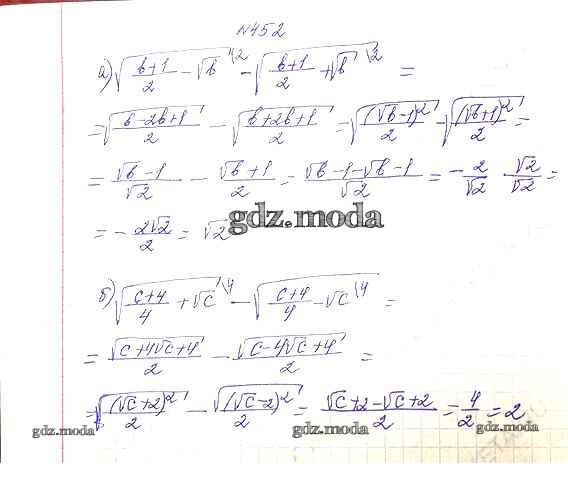 №452
а) √((b+1)/2 - √b) \2 - √((b+1)/2 + √b) \2 =
= √((b-2b+1)/2) - √((b+2b+1)/2) = √((√b-1)²/2) - √((√b+1)²/2) =
= (√b-1)/√2 - (√b+1)/2 = (√b-1-√b-1)/√2 = -2/√2 √2/√2 =
= -2√2/2 = √2
gdz.moda
б) √((c+4)/4 + √c) \4 - √((c+4)/4 - √c) \4 =
= √(c+4√c+4)/2 - √(c-4√c+4)/2 =
= √((√c+2)²)/2 - √((√c-2)²)/2 = (√c+2-√c+2)/2 = 4/2 = 2
gdz.moda gdz.moda